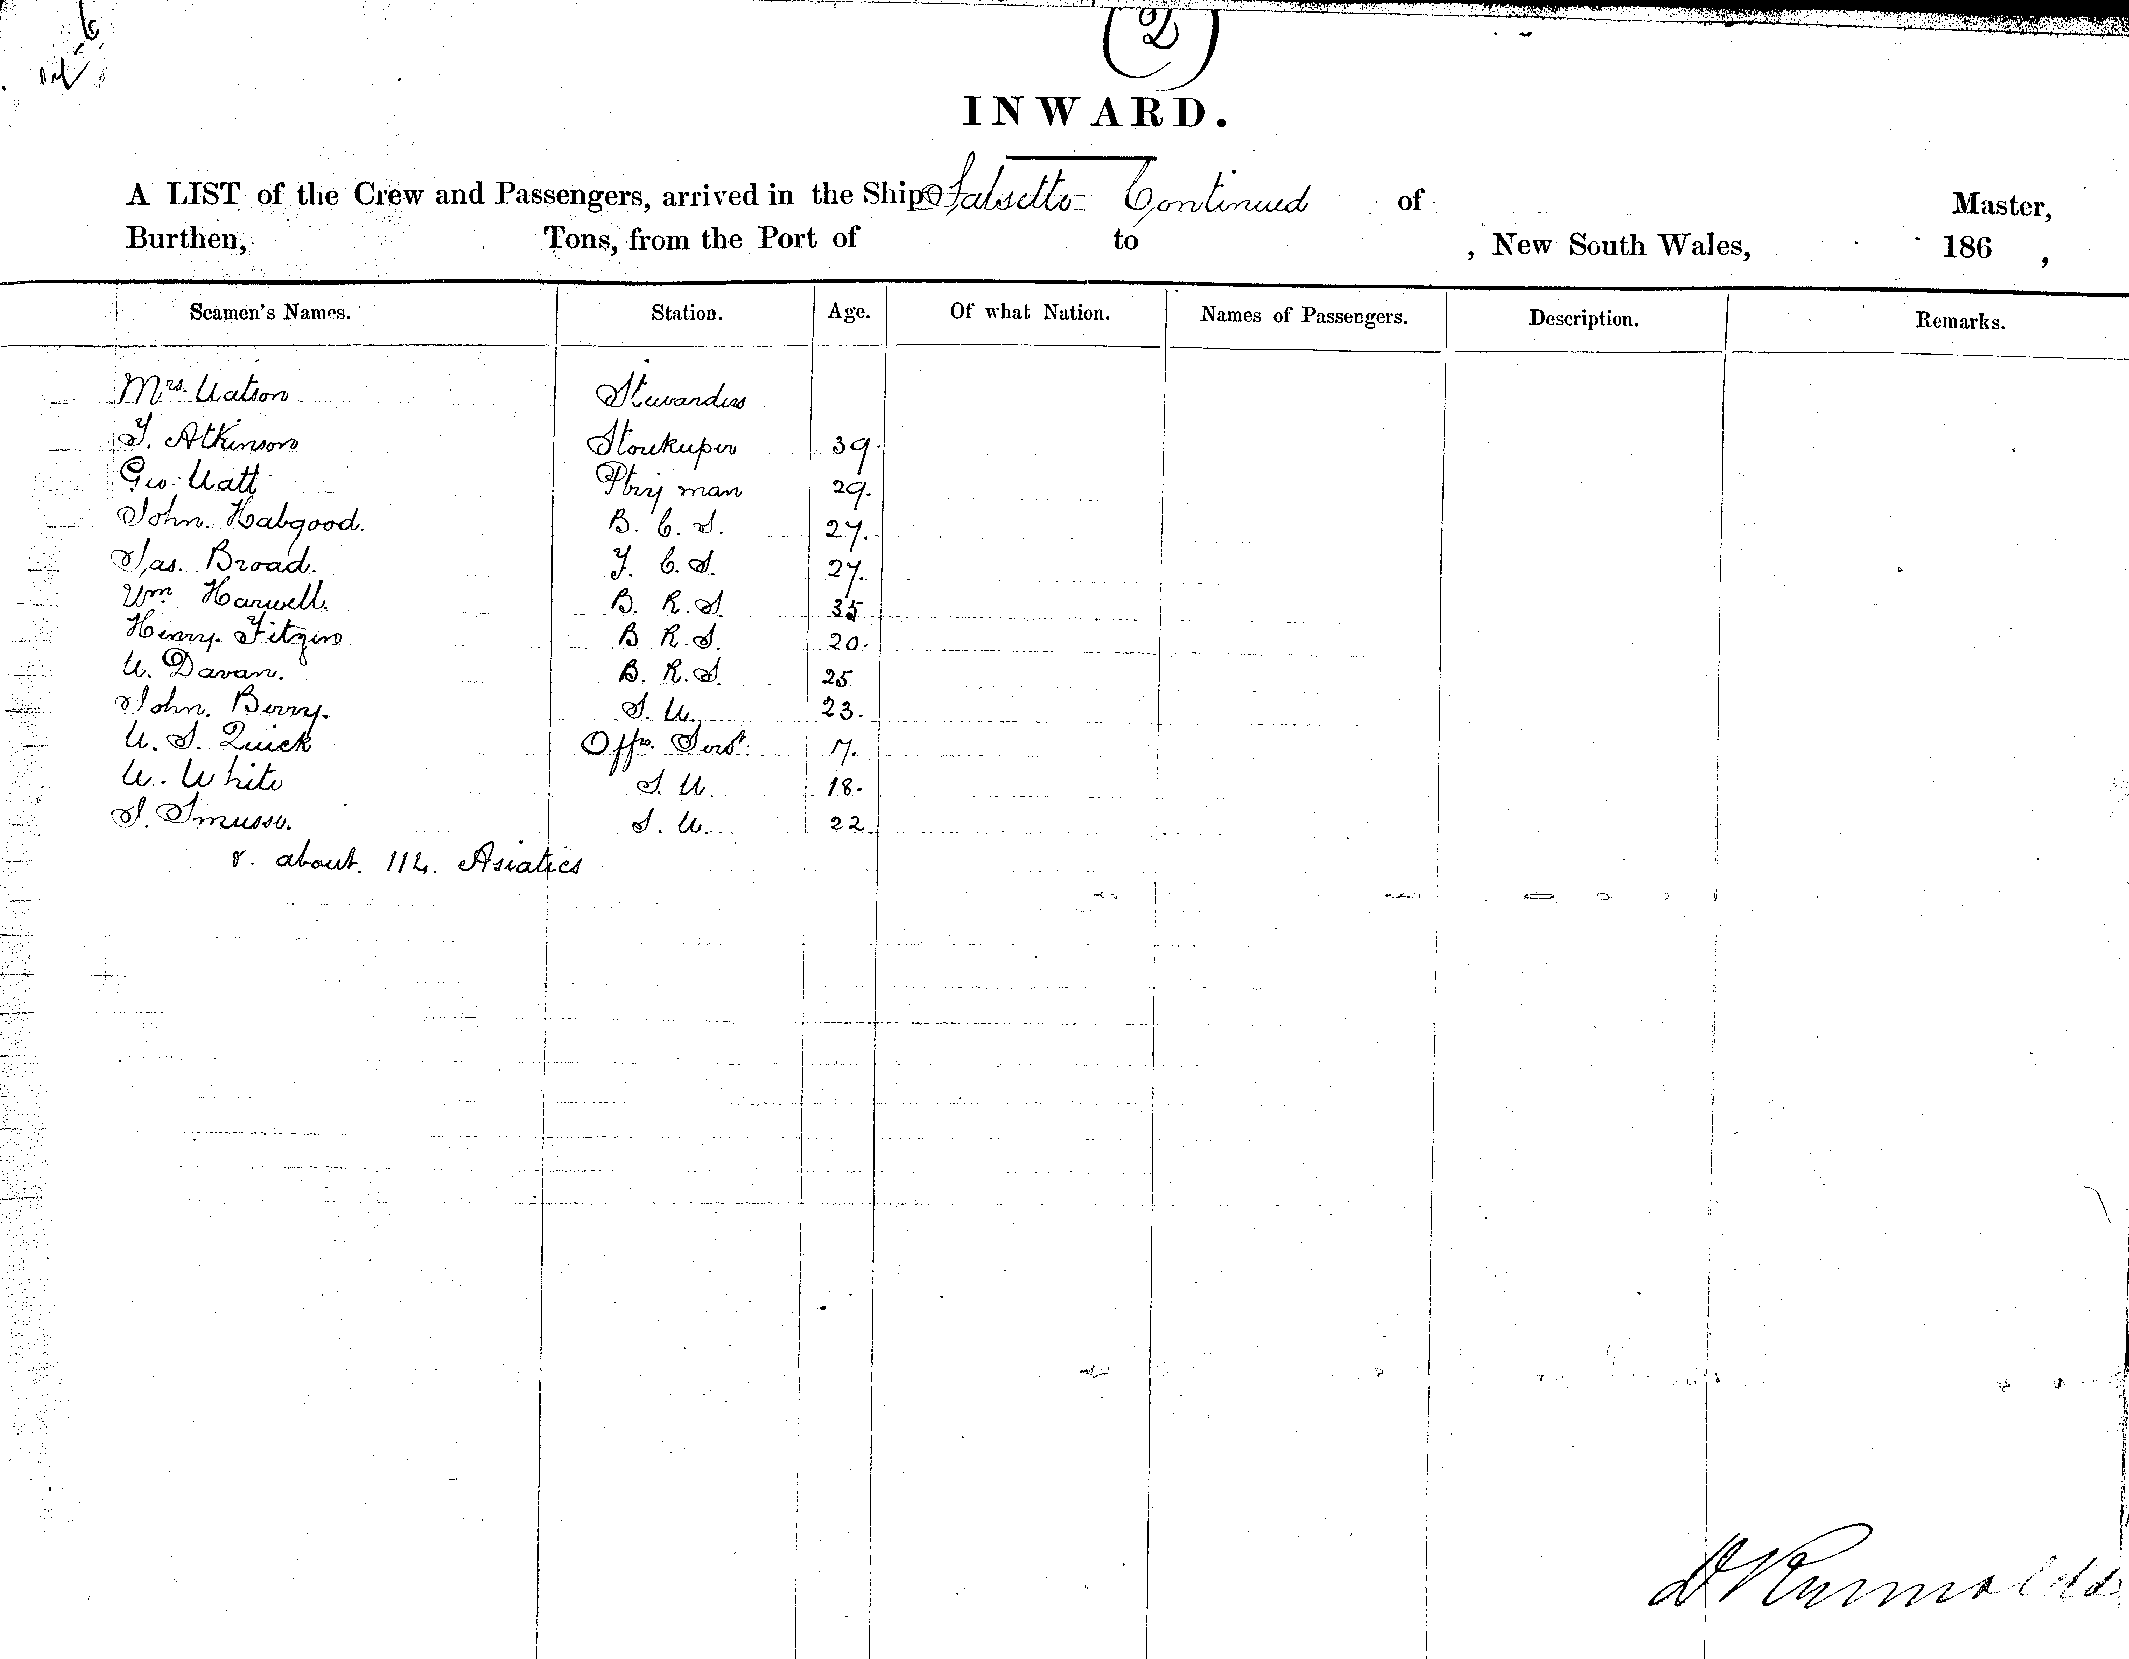 (2)
INWARD.
A LIST of the Crew and Passengers, arrived in the Ship Salsette Continued of Master,
Burthen, Tons, from the Port of to , New South Wales, 186 ,
Seamen's Names. Station. Age. Of what Nation. Names of Passengers. Description. Remarks.
Mrs. Watson Stewardess
T. Atkinson Storekeeper 39.
Geo. Watt Ptry man 29.
John. Habgood. B. C. S. 27.
Jas. Broad. F. C. S. 27.
Wm Harwell. B. R. S. 35
Henry. B R. S. 20.
W. Davan. B. R. S. 25
John. Berry. S. W. 23.
W. S. Quick Offrs. Servt. 17.
W. White S. W. 18.
S. S. W. 22.
& about. 114. Asiatics